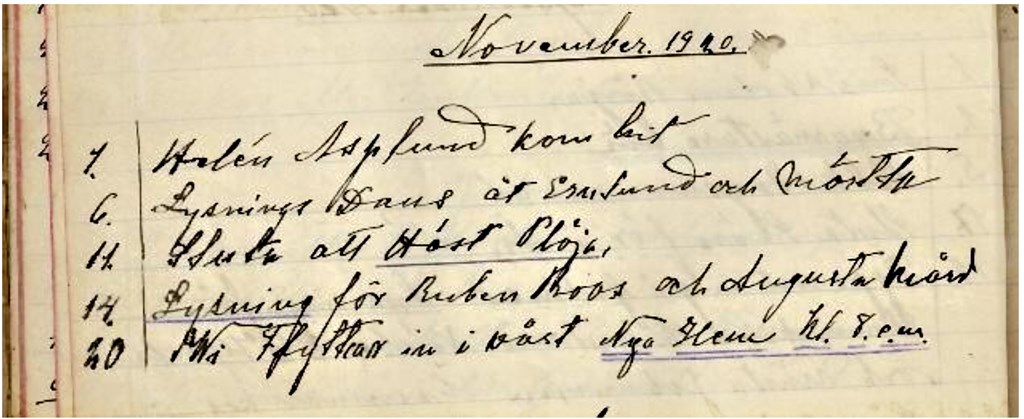 November. 1920.
1. Helén Asplund kom hit
6. Lysnings Dans åt Enlund och
11. Sluta att Höst Plöja,
14. Lysning för Ruben Roos och Augusta
20 Wi Flyttar in i vårt Nya Hem kl. 8. e.m.